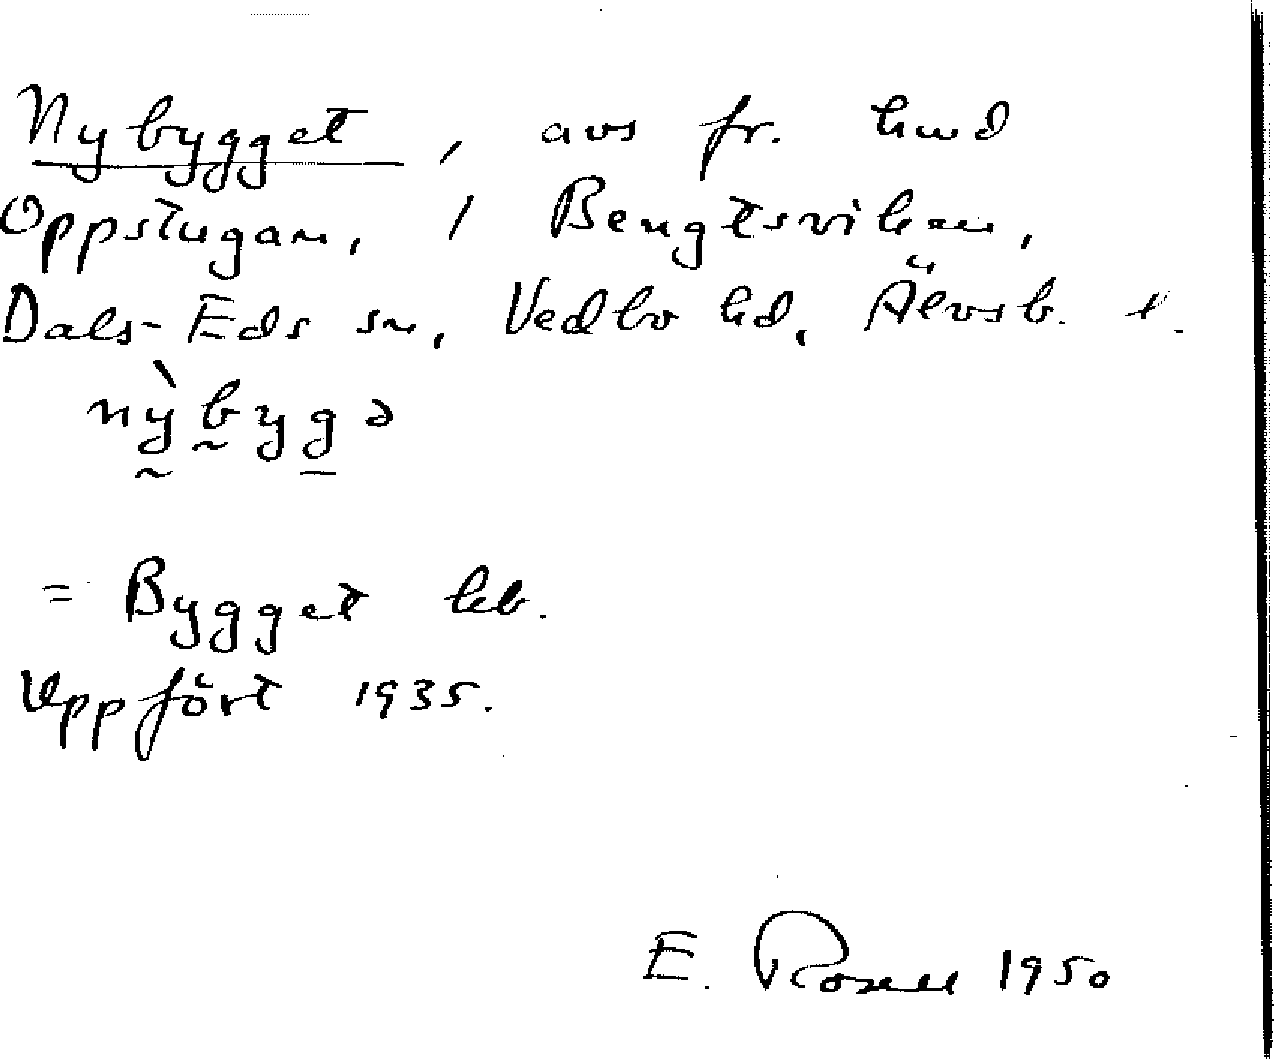 Nybygget, avs fr. hmd
Oppstugan, 1 Bengtsviken,
Dals-Eds sn, Vedbo hd, Älvsb. l.
nỳbygə
= Bygget kb.
Uppfört 1935.
E. Rosell 1950